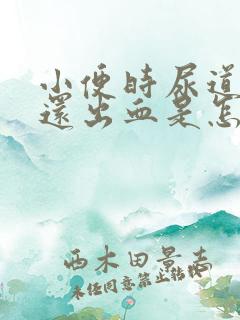 小便時尿道
還出血是怎
西木田景志
未经同意禁止转载